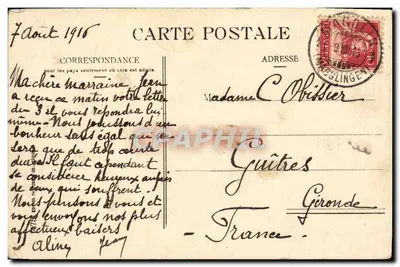 7 Aout 1916
CARTE POSTALE
CORRESPONDANCE
ADRESSE
Ma chère marraine, Jean
a reçu ce matin votre lettre
du 3 il vous répondra lui
même. Nous jouissons d'un
bonheur sans égal qui
sera que de trop courte
durée. Il faut cependant
se considérer heureux auprès
de ceux qui souffrent.
Nous pensons à vous et
vous envoyons nos plus
affectueux baisers
Aline Jean
Madame C Obissier
Guîtres
Gironde
France